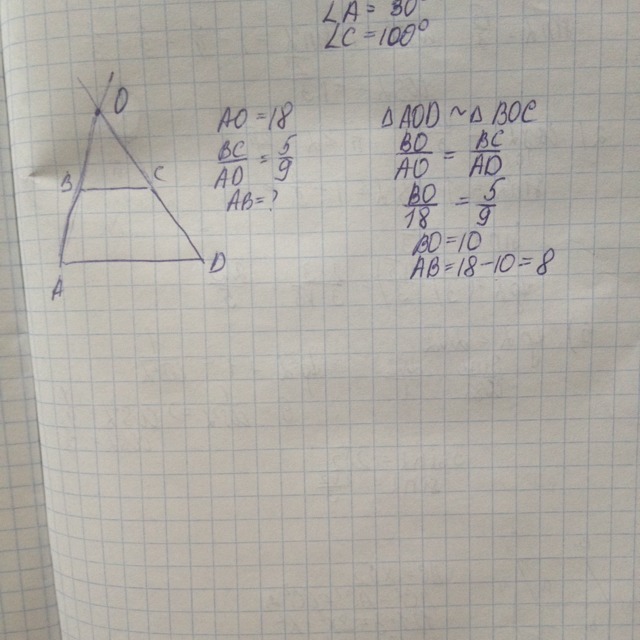 ∠A = 80°
∠C = 100°
O
B
C
A
D
AO = 18
BC/AD = 5/9
AB = ?
△AOD ~ △BOC
BO/AO = BC/AD
BO/18 = 5/9
BO = 10
AB = 18 - 10 = 8